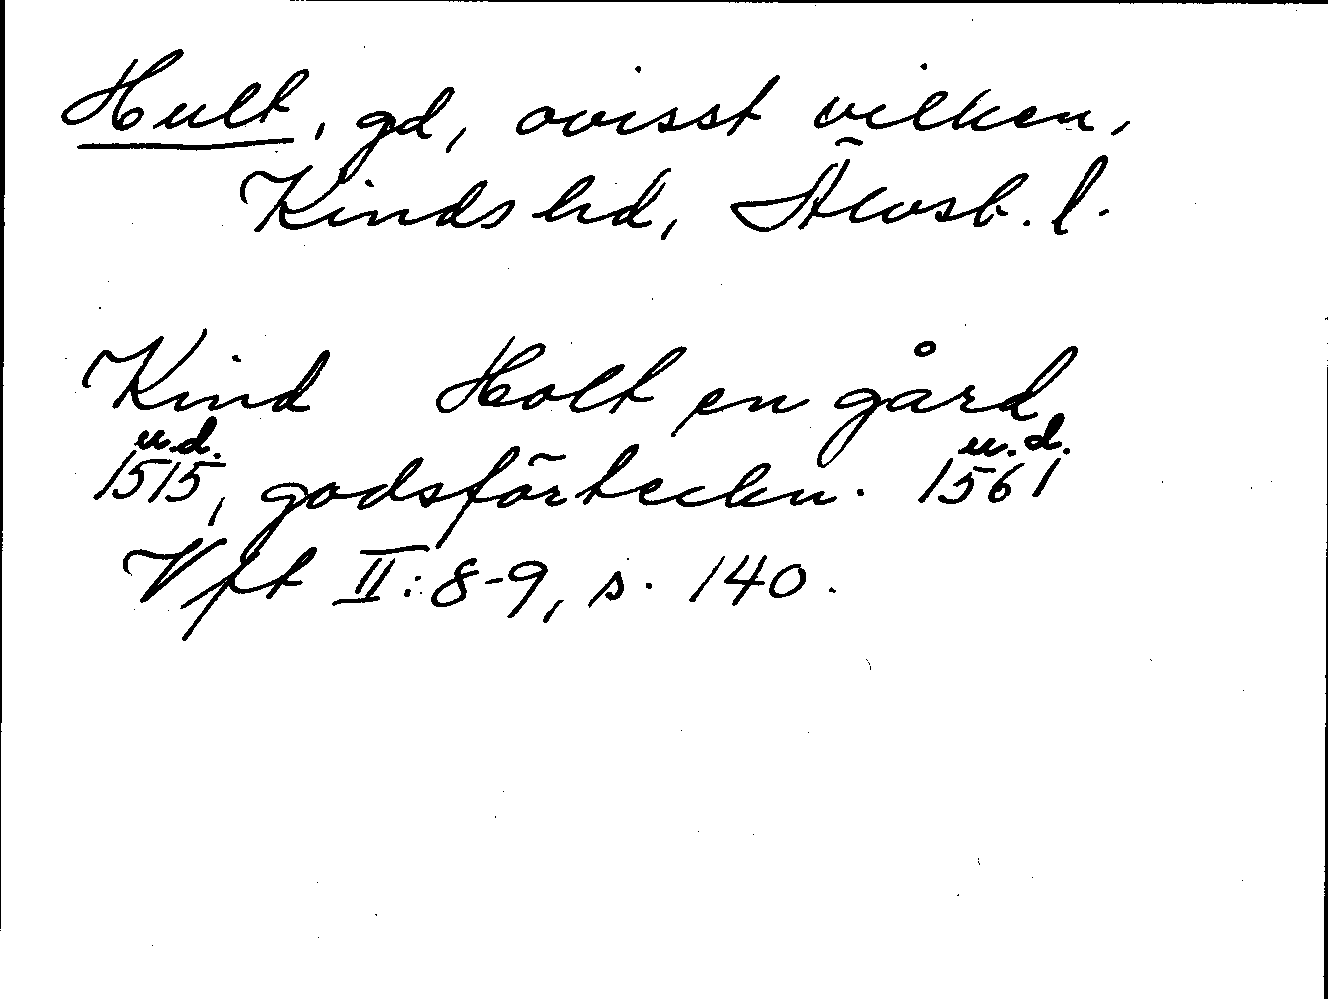 Hult, gd, ovisst vilken,
Kinds hd, Älvsb. l.
Kind Holt en gård
u.d. u.d.
1515, godsförteckn. 1561
Vft II: 8-9, s. 140.